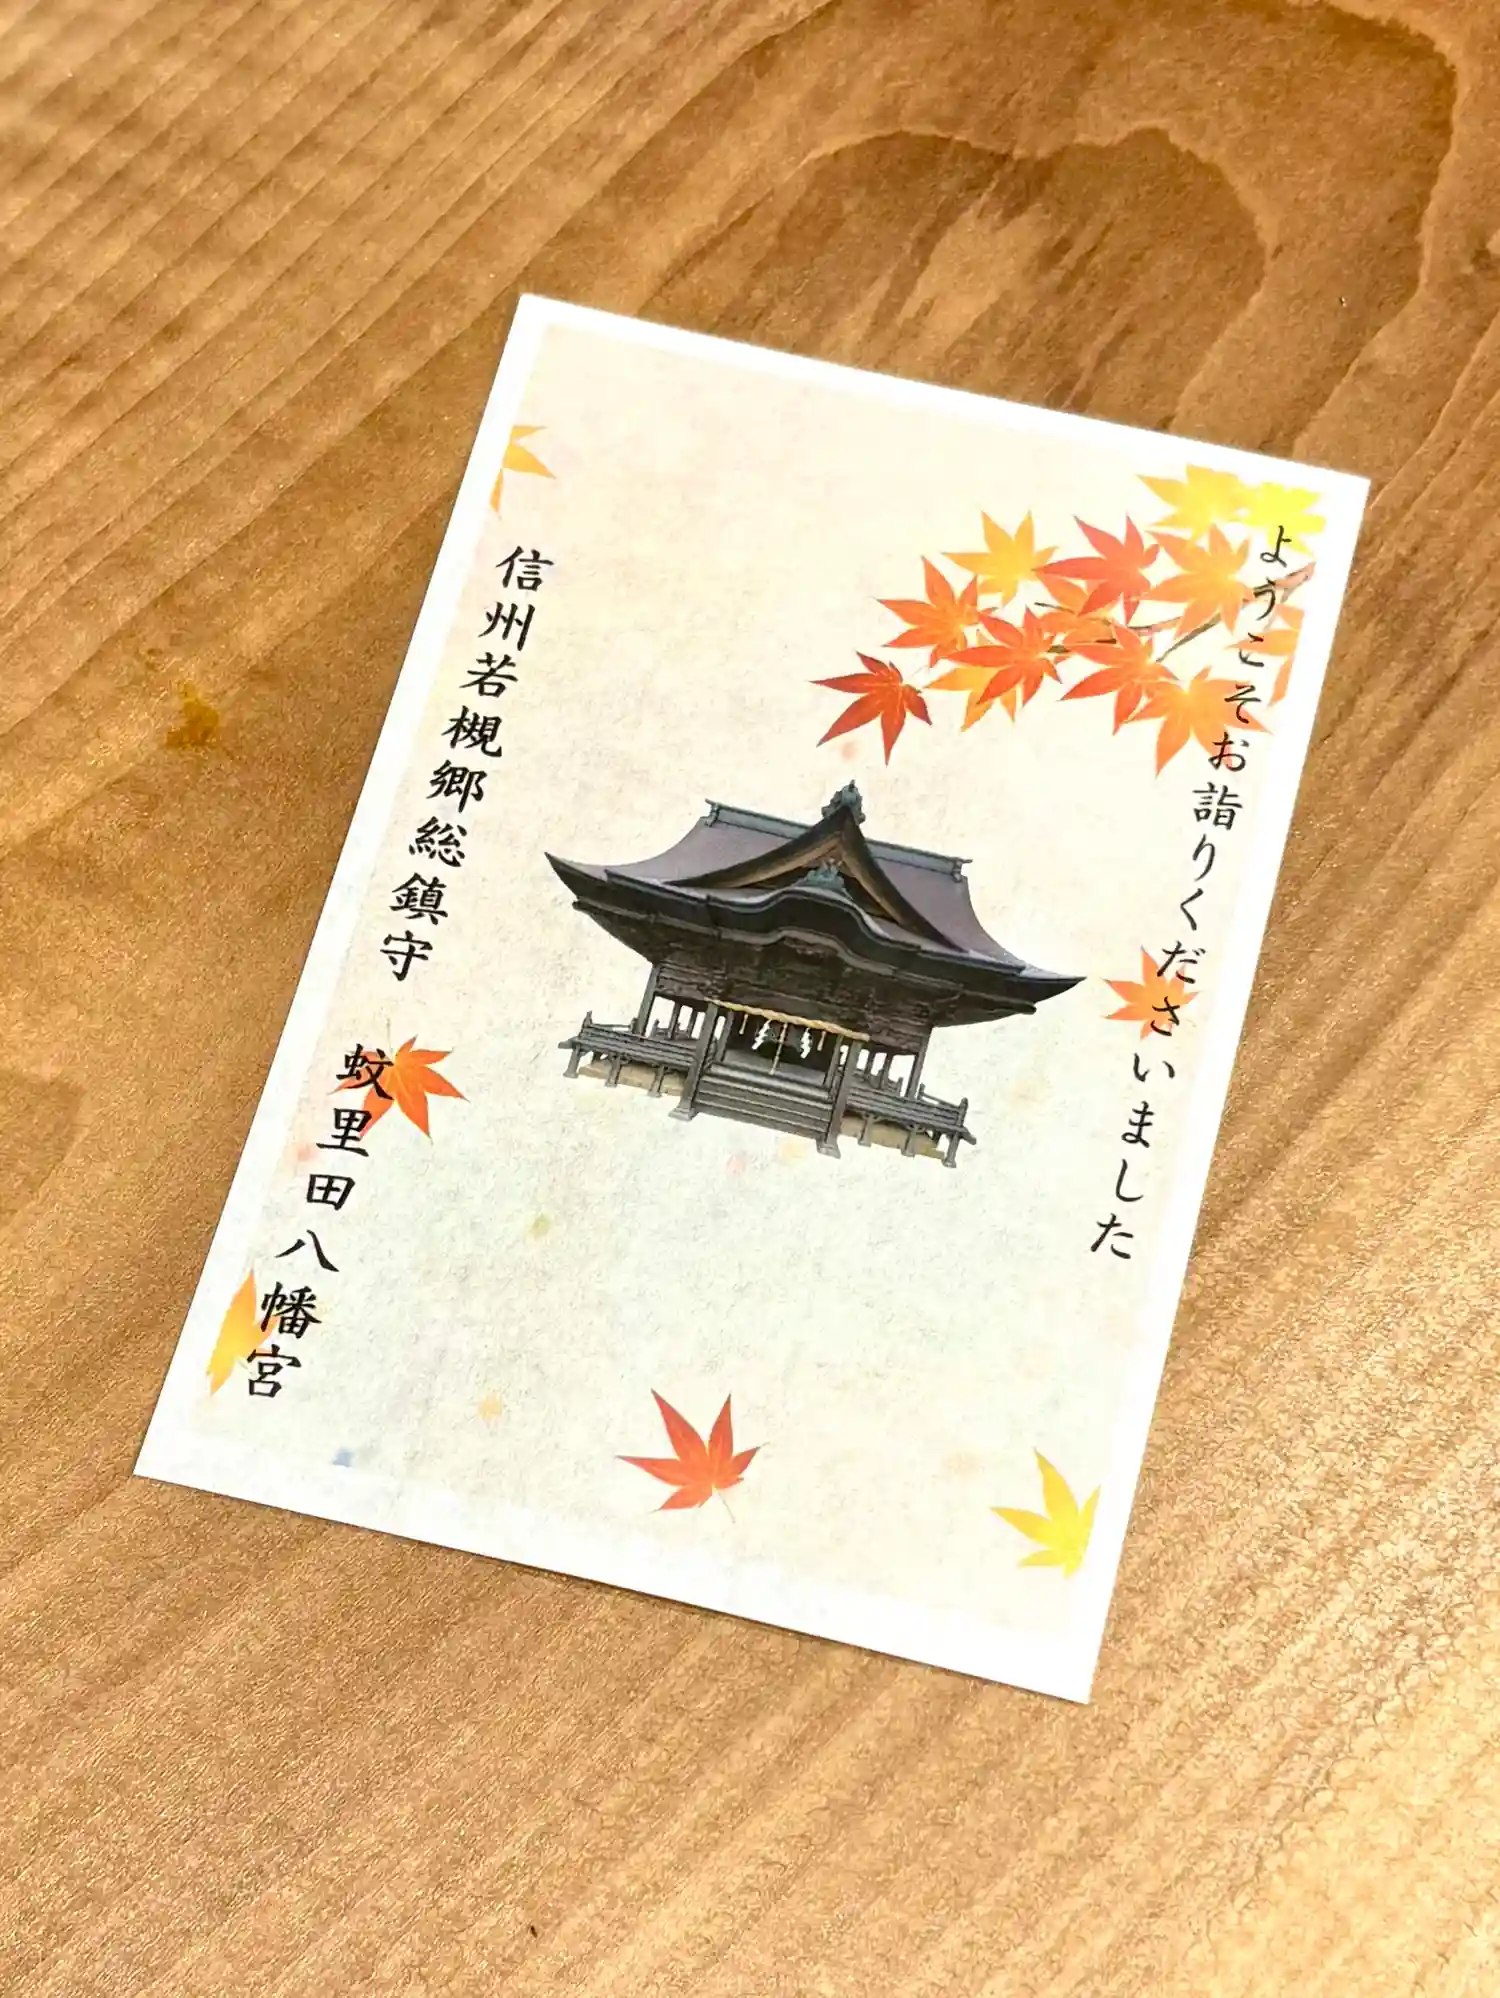 ようこそお詣りくださいました
信州若槻郷総鎮守 蚊里田八幡宮